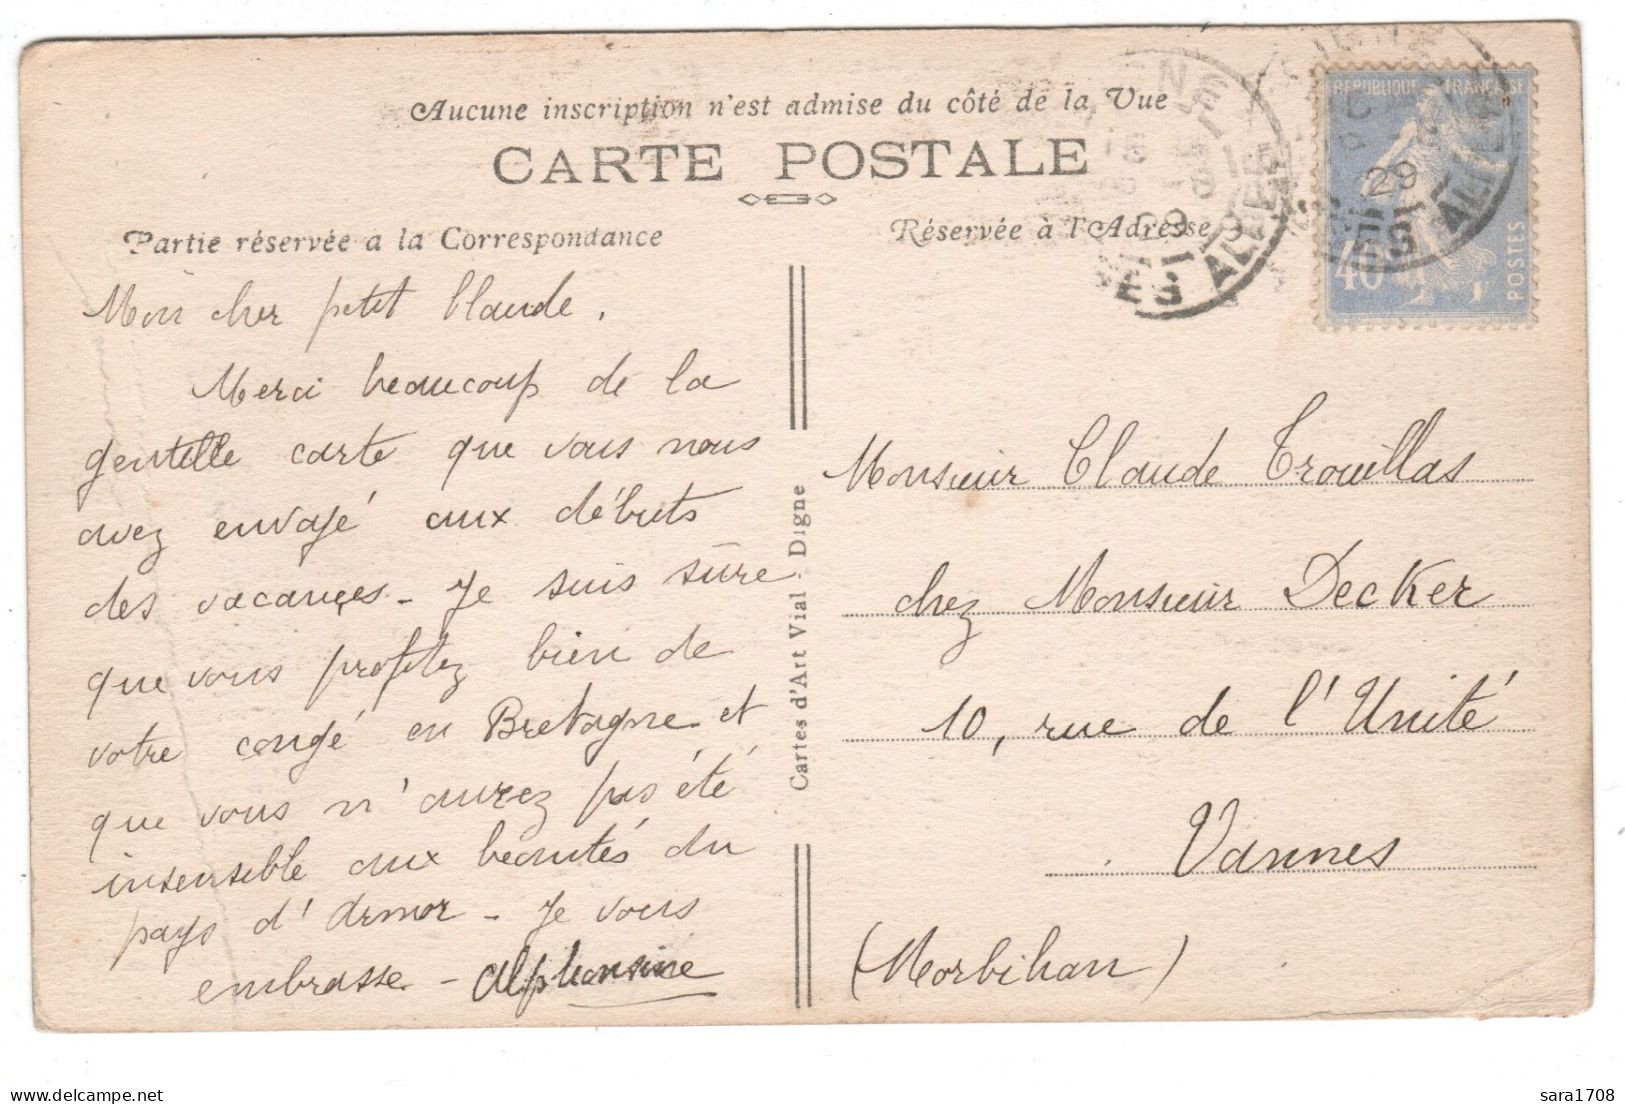 Aucune inscription n'est admise du côté de la Vue
CARTE POSTALE
Partie réservée a la Correspondance
Réservée à l'Adresse
RÉPUBLIQUE FRANÇAISE
29
40
POSTES
29
Mon cher petit Claude,
Merci beaucoup de la
gentille carte que vous nous
avez envoyé aux débuts
des vacances - Je suis sûre
que vous profitez bien de
votre congé en Bretagne et
que vous n'aurez pas été
insensible aux beautés du
pays d'Armor - Je vous
embrasse - Alphonsine
Cartes d'Art Vial - Digne
Monsieur Claude Trouillas
chez Monsieur Decker
10, rue de l'Unité
Vannes
(Morbihan)
sara1708